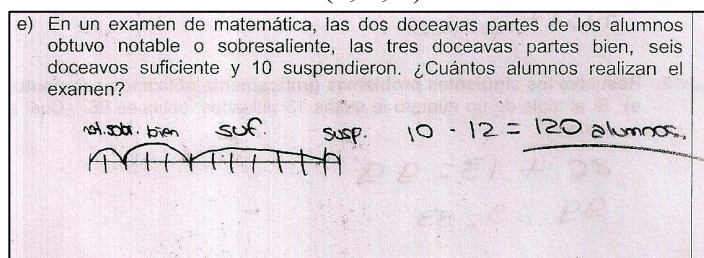 e) En un examen de matemática, las dos doceavas partes de los alumnos
obtuvo notable o sobresaliente, las tres doceavas partes bien, seis
doceavos suficiente y 10 suspendieron. ¿Cuántos alumnos realizan el
examen?
not.sobr. bien suf. susp. 10 · 12 = 120 alumnos.